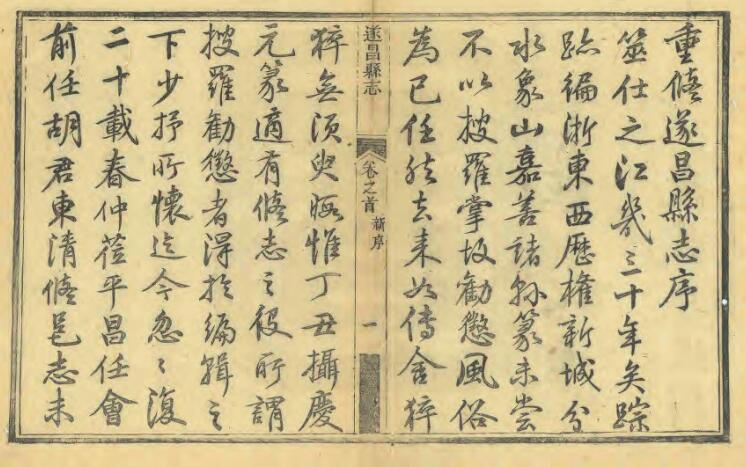 重脩遂昌縣志序
筮仕之江幾三十年矣踪
跡徧浙東西歷權新城分
水象山嘉善諸縣篆未嘗
不以搜羅掌故勸懲風俗
為已任然去来如傳舍猝
遂昌縣志
卷之首 新序
一
猝無須臾暇惟丁丑攝慶
元篆適有脩志之役所謂
搜羅勸懲者淂於編輯之
下少抒所懷迄今忽〻復
二十載春仲蒞平昌任會
前任胡君東清脩邑志未